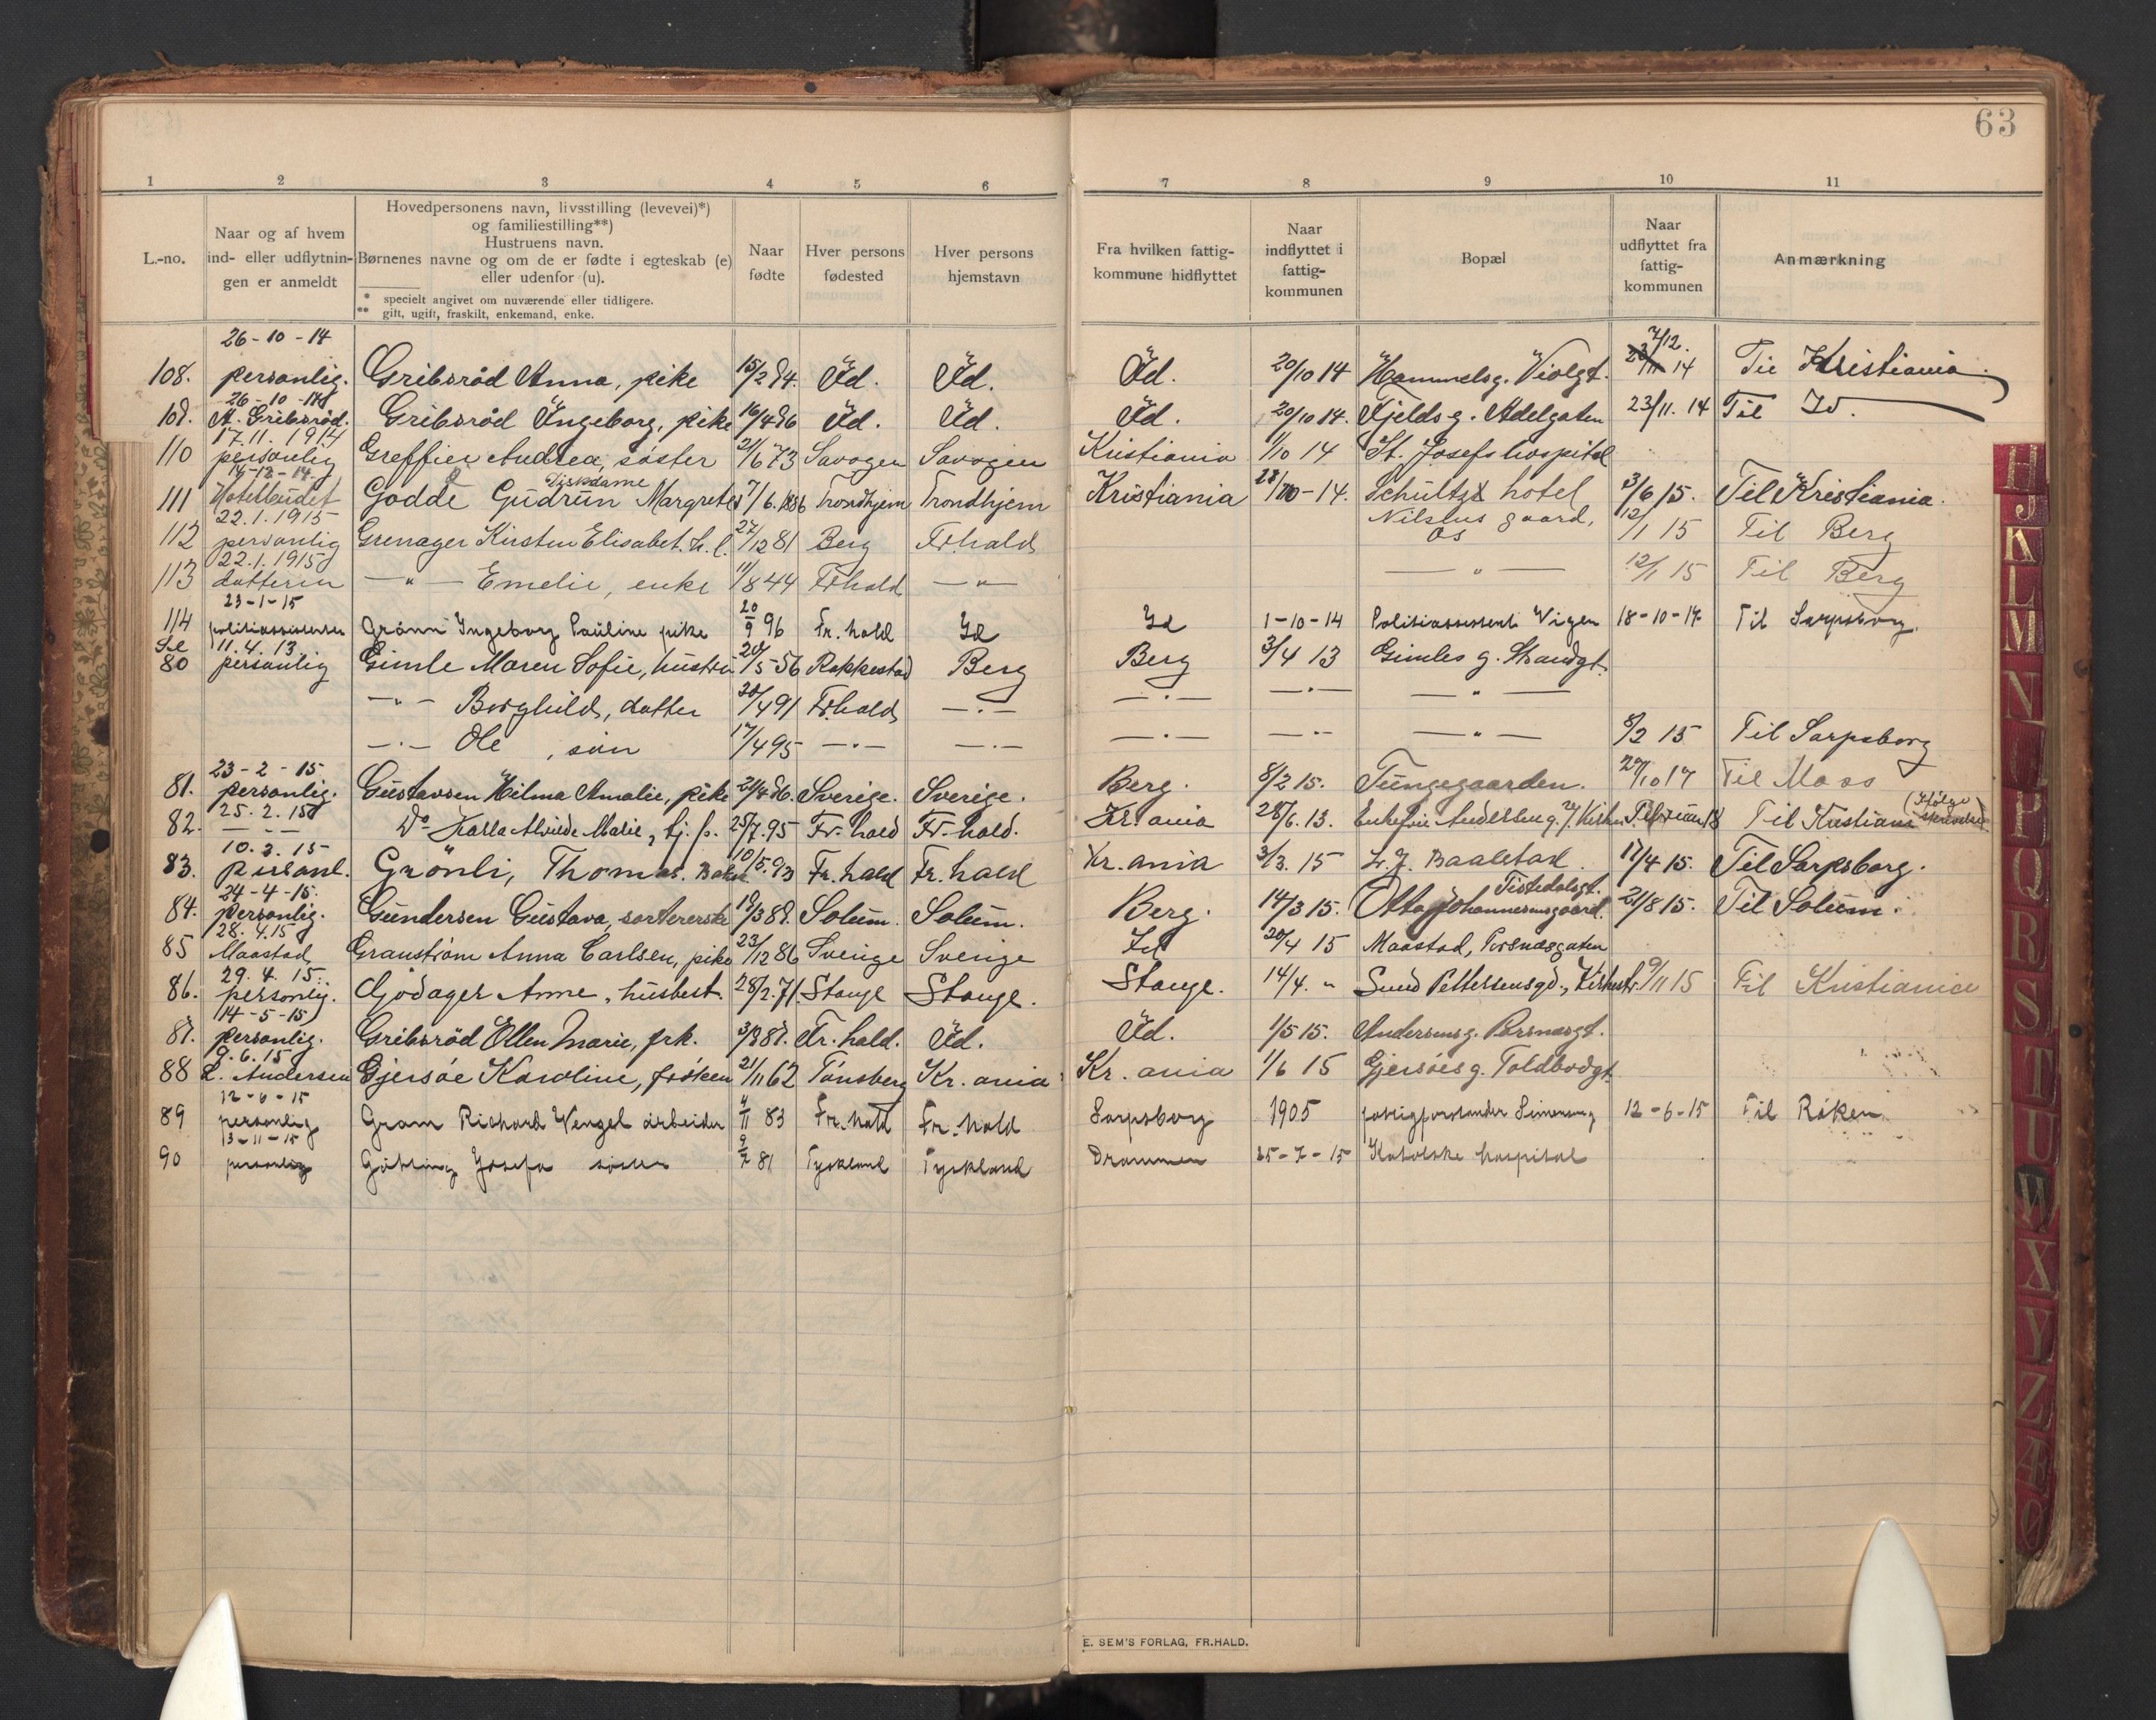 63
1 2 3 4 5 6 7 8 9 10 11
L.-no.
Naar og af hvem
ind- eller udflytnin-
gen er anmeldt
Hovedpersonens navn, livsstilling (levevei)*)
og familiestilling**)
Hustruens navn.
Børnenes navne og om de er fødte i egteskab (e)
eller udenfor (u).
* specielt angivet om nuværende eller tidligere.
** gift, ugift, fraskilt, enkemand, enke.
Naar
fødte
Hver persons
fødested
Hver persons
hjemstavn
Fra hvilken fattig-
kommune hidflyttet
Naar
indflyttet i
fattig-
kommunen
Bopæl
Naar
udflyttet fra
fattig-
kommunen
Anmærkning
26-10-14 7/12.
108. personlig. Gribsröd Anna, pike 15/2 84. Id. Id. Id. 20/10 14 Hammelsg. Violgt. 14 Til Kristiania.
26-10-14
109. A. Gribsröd. Gribsröd Ingeborg, pike 16/4 86 Id. Id. Id. 20/10 14. Fjelds g. Adelgaten 23/11. 14 Til Id.
17.11.1914
110 personlig Greffier Andrea, søster 21/6 73 Savogen Savogen Kristiania 1/10 14 St. Josefs hospital
14-12-14 Diskdame
111 Hotelbudet Godde Gudrun Margrete 7/6.1886 Trondhjem Trondhjem Kristiania 14. Schultzs hotel 3/6 15. Til Kristiania.
22.1.1915 Nilslus gaard,
112 personlig Grenager Kirsten Elisabet. h. l. 27/12 81 Berg Fr.hald Os 12/1 15 Til Berg
22.1.1915
113 datteren —"— Emelie, enke 11/8 44 Fr.hald —"— —"— 12/1 15 Til Berg
23-1-15
114 politiassistenten Grönn Ingeborg Pauline pike 20/9 96 Fr. hald Id Id 1-10-14 Politiassistent Vigen 18-10-14 Til Sarpsborg.
Se 11.4.13
80 personlig Gimle Maren Sofie, hustru 20/5 56 Rakkestad Berg Berg 3/4 13 Gimles g. Strandgt.
—"— Borghild, datter 30/4 91 Fr.hald —"— —"— —"— —"—
—"— Ole, søn 17/4 95 —"— —"— —"— —"— —"— 8/2 15 Til Sarpsborg
23-2-15
81. personlig. Gustavsen Hilma Amalie, pike 24/4 86. Sverige. Sverige. Berg. 8/2 15. Tungegaarden. 27/10 17 Til Moss
25.2.15 (Ifølge
82. —"— Do Karla Alvilde Marie, tj. p. 25/7.95 Fr. hald Fr. hald. Kr.ania 28/6.13. Enkefrue Andersen g. Februar 18 Til Kristiania skrivelse)
10.3.15
83. Personl. Grönli, Thomas. Baker 10/5.93 Fr. hald Fr. hald Kr. ania 3/3. 15 L. J. Baalstad 17/4 15. Til Sarpsborg.
24-4-15. Tistedalsgt.
84. Personlig. Gundersen Gustava, sortererske 19/3 89. Solum. Solum. Berg. 14/3 15. Otto Johannesensgaard. 21/8 15. Til Solum.
28.4.15
85 Maastad Granström Anna Carlsen, pike 23/12 86 Sverige Sverige Id 20/4 15 Maastad, Porsnæsgaten
29.4.15.
86. personlig. Gjödager Anne, husbest. 28/2.71. Stange Stange. Stange. 14/4. " Sund Pettersensgd., Kirkest. 9/11 15 Til Kristiania
14-5-15)
87. personlig. Gribsröd Ellen Marie, frk. 3/8 87. Fr. hald. Id. Id. 1/5 15. Andersens g. Porsnæsgt.
9.6.15
88 L. Andersen Gjersøe Karoline, frøken 21/11 62 Tønsberg Kr. ania Kr. ania 1/6 15 Gjersøes g. Toldbodgt.
12-6-15
89 personlig Gram Richard Wenzel arbeider 4/11 83 Fr. hald Fr. hald Sarpsborg 1905 fattigforstander Simensen g 12-6-15 Til Röken
13-11-15
90 personlig Göttling Josefa søster 81 Tyskland Tyskland Drammen 25-7-15 Katolske hospital
E. SEM'S FORLAG, FR.HALD.
H
J
K
L
M
N
P
Q
R
S
T
U
W
X
Y
Z
Æ
Ø